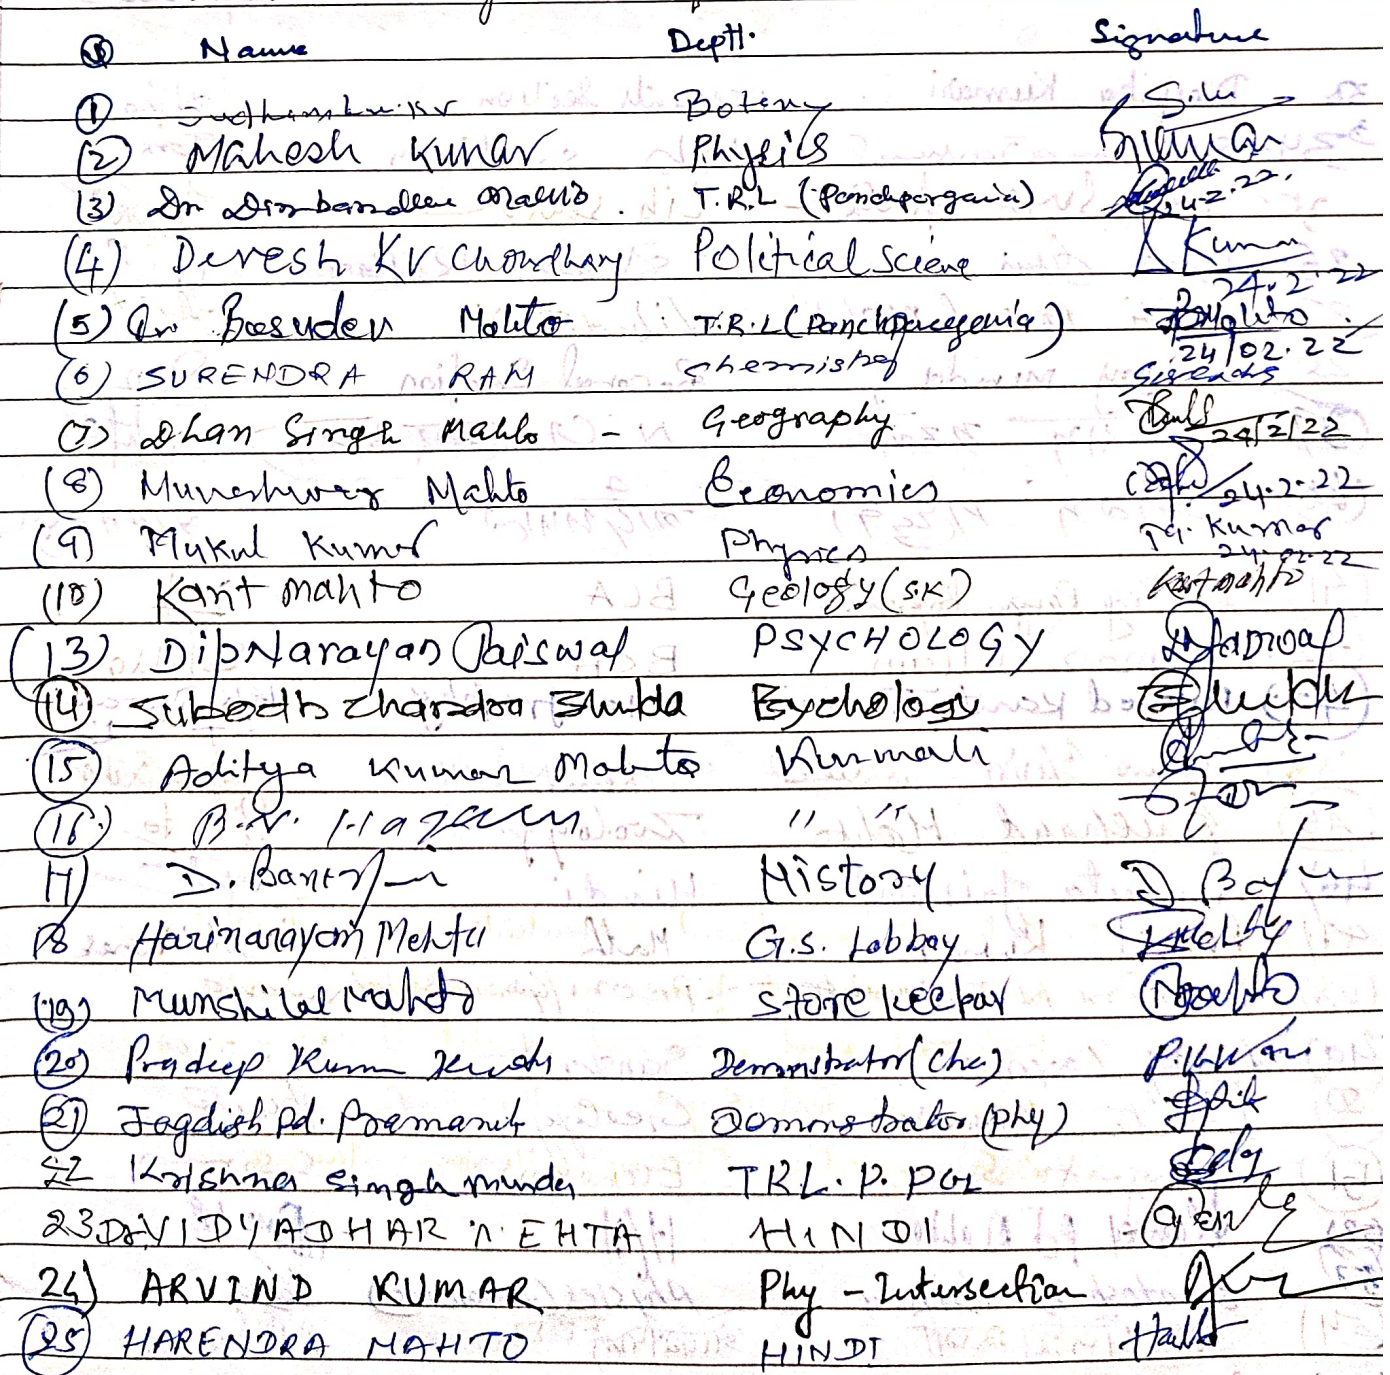 Name Deptt. Signature
(1) Sudhanshu Kr Botany
(2) Mahesh Kumar Physics
(3) Dr Dinbandhu Mahto. T.R.L (Panchpargania) 24.2.22.
(4) Devesh Kr Chowdhary Political Science Kumar 24.2.22
(5) Dr Basudev Mahto T.R.L (Panchpargania) BMahto 24/02.22
(6) SURENDRA RAM Chemistry Surendra
(7) Dhan Singh Mahto - Geography 24/2/22
(8) Muneshwar Mahto Economics 24.2.22
(9) Mukul Kumar Physics M. Kumar 24.02.22
(10) Kant Mahto Geology (S.K) Kantmahto
(13) Dip Narayan Jaiswal PSYCHOLOGY Jaiswal
(14) Subodh Chandra Shukla Psychology Shukla
(15) Aditya Kumar Mahto Kurmali
(16) B.N. " "
17) D. Banerjee History D Ba
18 Harinarayan Mehta G.S. Lobbay
(19) Munshilal Mahto Store keepar
(20) Pradeep Kumar Demonstrator (Che)
(21) Jagdish Pd. Pramanik Domonstrator (Phy)
22 Krishna Singh Munda TRL. P. PGL
23 Dr VIDYADHAR MEHTA HINDI
24) ARVIND KUMAR Phy - Intersection
(25) HARENDRA MAHTO HINDI